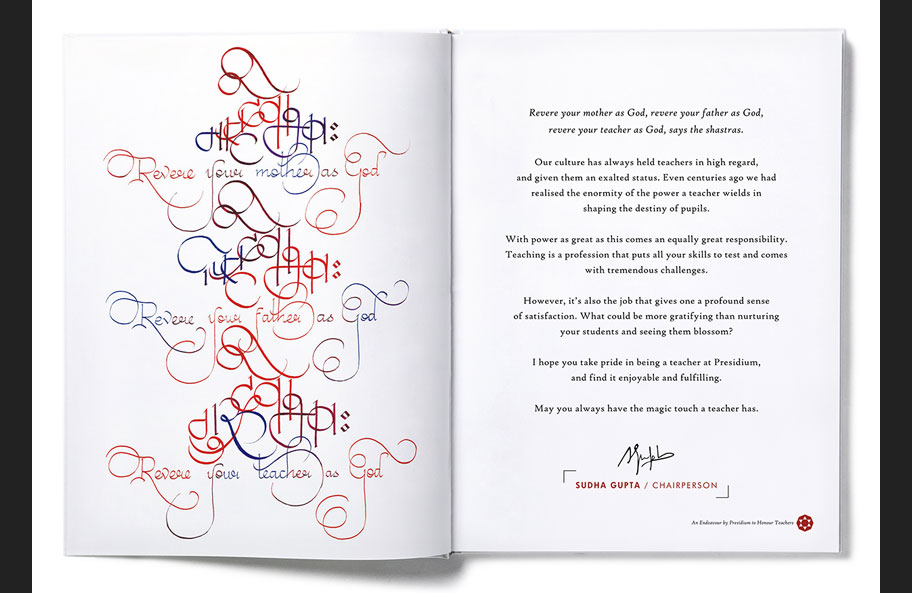 Revere your mother as God
Revere your father as God
Revere your teacher as God
Revere your mother as God, revere your father as God,
revere your teacher as God, says the shastras.
Our culture has always held teachers in high regard,
and given them an exalted status. Even centuries ago we had
realised the enormity of the power a teacher wields in
shaping the destiny of pupils.
With power as great as this comes an equally great responsibility.
Teaching is a profession that puts all your skills to test and comes
with tremendous challenges.
However, it's also the job that gives one a profound sense
of satisfaction. What could be more gratifying than nurturing
your students and seeing them blossom?
I hope you take pride in being a teacher at Presidium,
and find it enjoyable and fulfilling.
May you always have the magic touch a teacher has.
SUDHA GUPTA / CHAIRPERSON
An Endeavour by Presidium to Honour Teachers